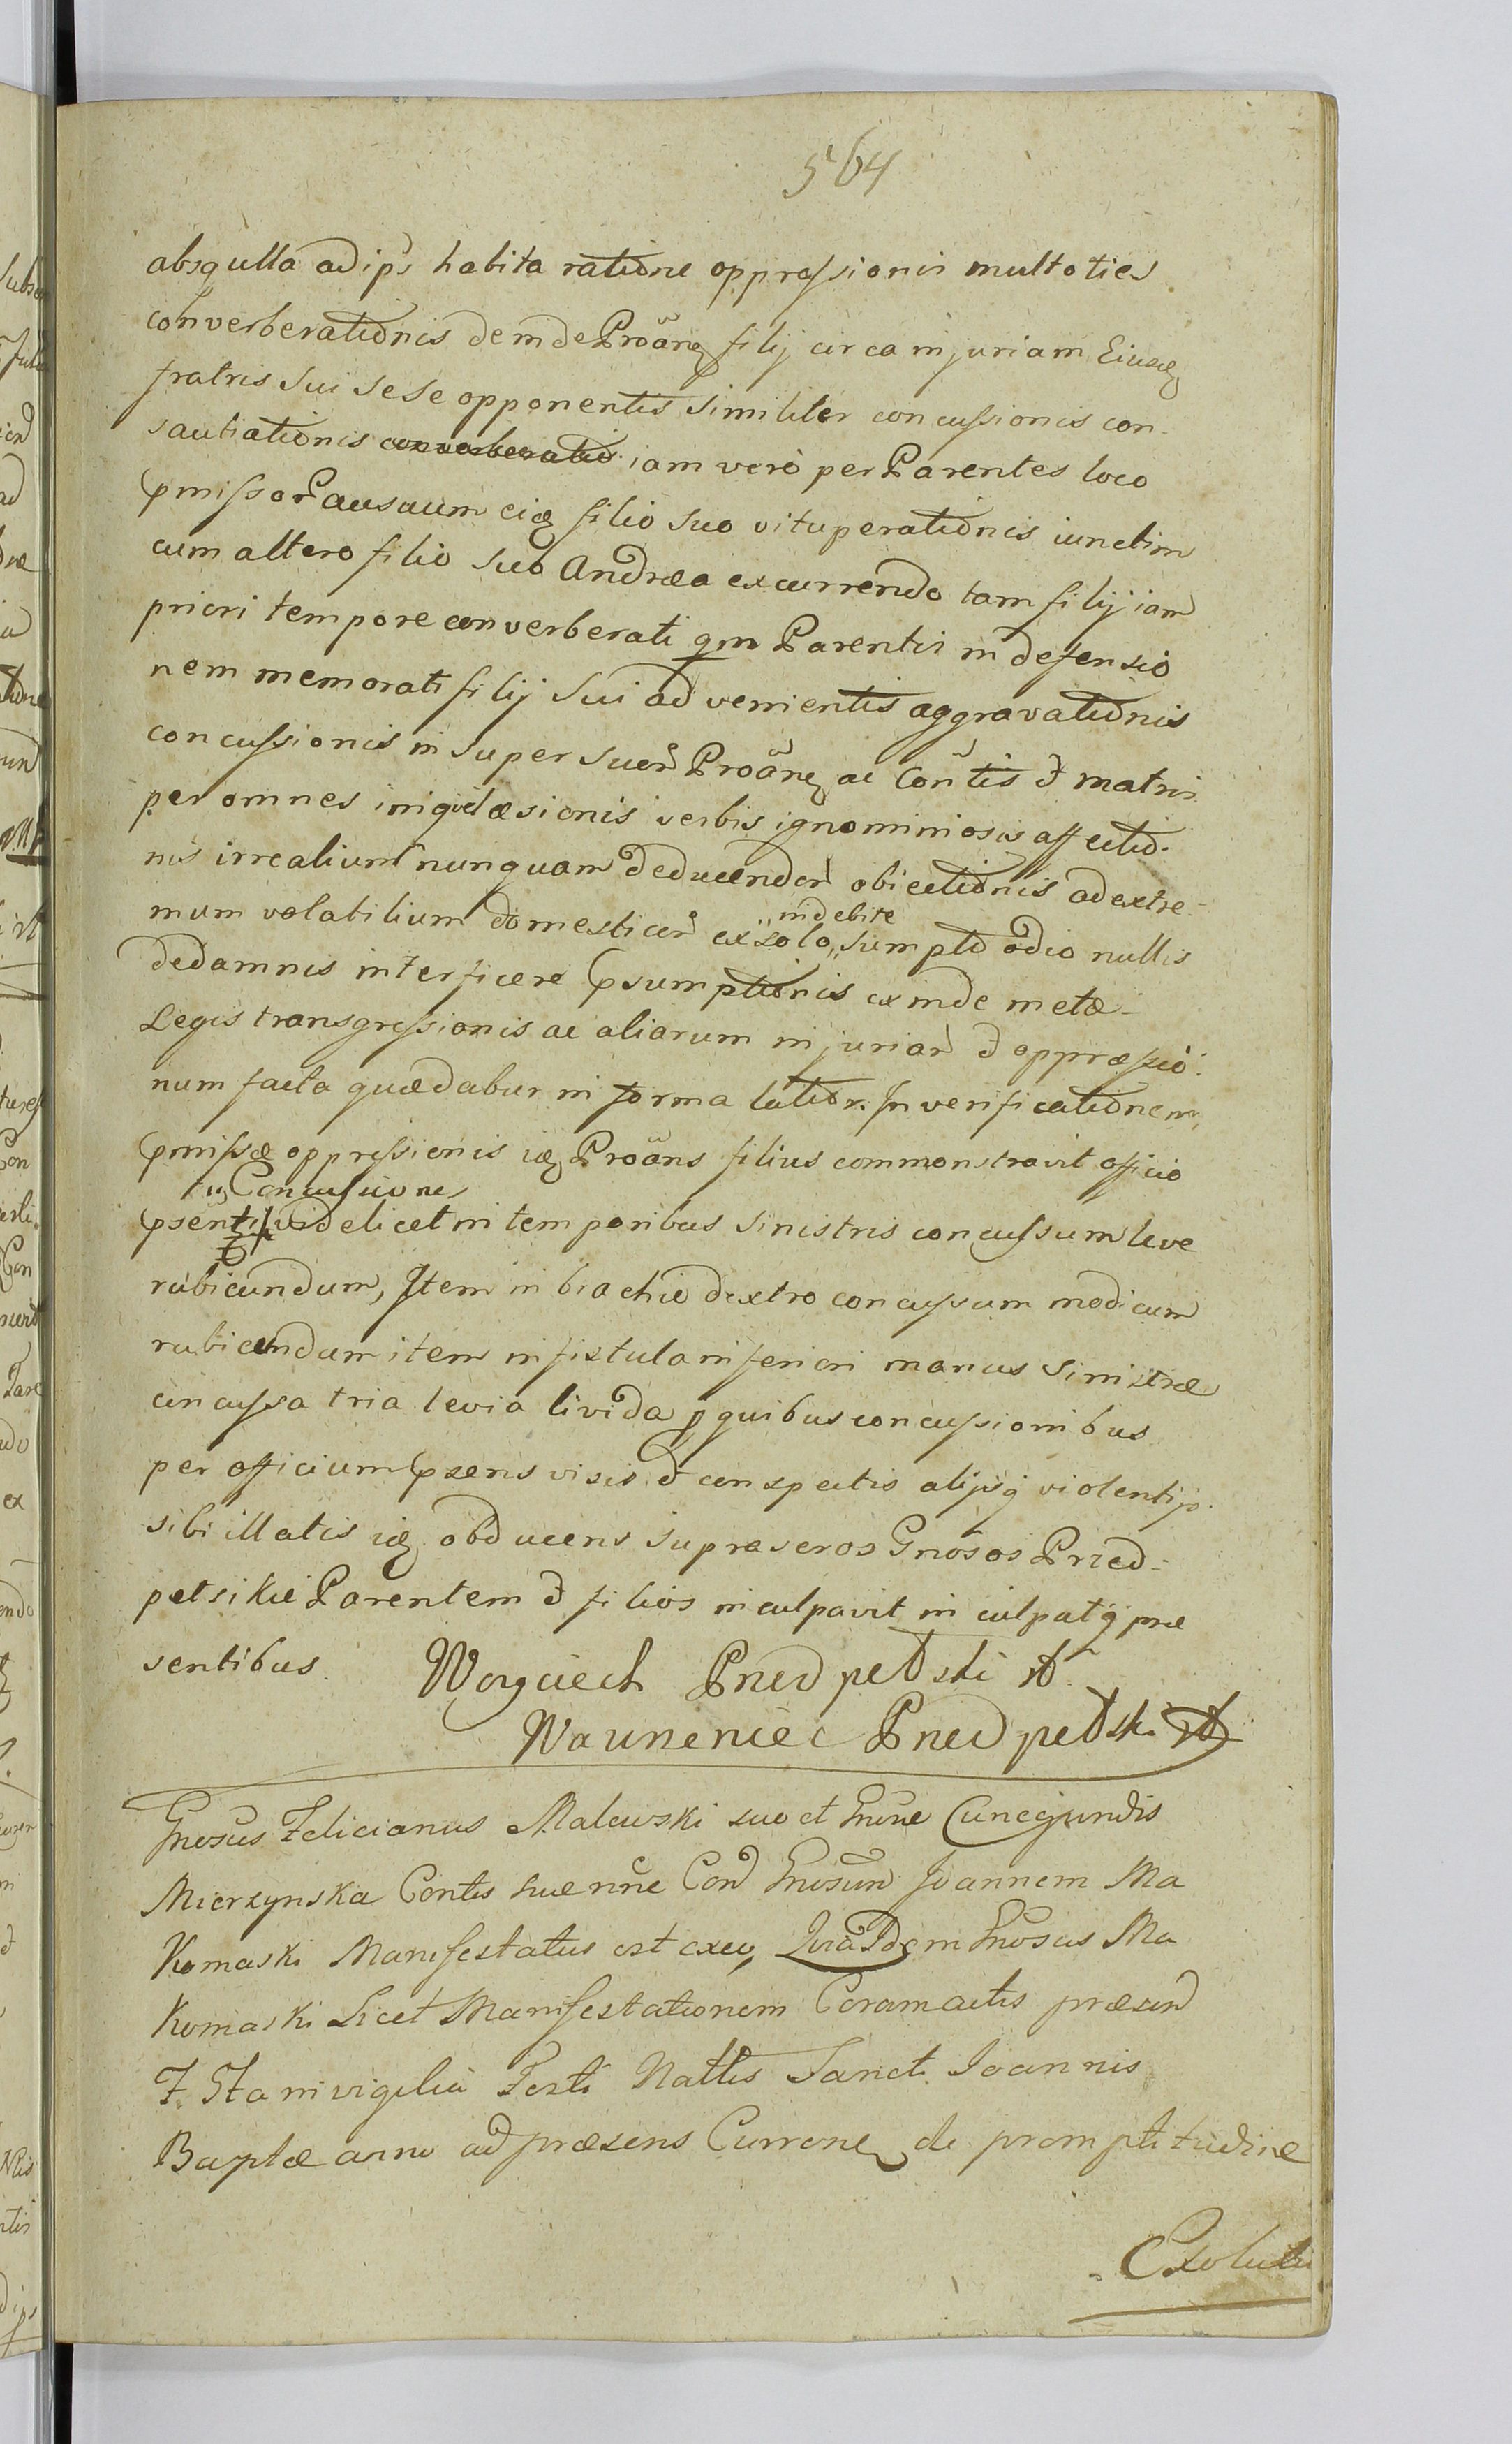 564
absq ulla ad ips habita ratione oppressionis multoties
converberationis demde Proãng filij circa injuriam Eiusdg
fratris sui sese opponentis similiter concussionis con-
sautiationis converberatis iam verò per Parentes loco
pmissor causarum eidg filio suo vituperationis iunctim
cum altero filio suo Andrea excurrendo tam filij iam
priori tempore converberati qm Parentis in defensio
nem memorati filij sui advenientis aggravationis
concussionis insuper suor Proãng ac Contis et matris
per omnes inigidæsionis verbis ignominiosis affectio-
nis irrealium nunquam deducendor obiectionis ad extre-
mum volatilium domesticor ex solo indebite sumpto odio nullis
de damnis interficere psumptionis exinde metæ
Legis transgressionis ac aliarum injuriar et oppressio-
num facta quæ dabur in forma latior. In verificationem
pmissæ oppressionis idg Proãns filius commonstravit officio
Concussiones
psenti videlicet in temporibus sinistris concussum leve
rubicundum, Item in brachio dextro concussum modicum
rubicundum item in fistula inferiori manus sinistræ
concussa tria levia livida p quibus concussionibus
per officium psens visis et conspectis alijsq violentijs
sibi illatis idg obducens supraseros Gnosos Przed-
petskie Parentem et filios inculpavit inculpatq præ
sentibus. Woyciech Przedpetski
Wawrzeniec Przedpetski
Gnosus Felicianus Malewski suo et Gnone Cunegundis
Mierzynska Contis suæ nne Con Gnosum Joannem Ma
Komaski Manifestatus est exeo, Quia Idem Gnosus Ma
Komaski Licet Manifestationem Coram actis præsen
F. Sta in vigilia Festi Nattis Sancti Joannis
Baptæ anno ad præsens Curreng de promptitudine
Exoluti